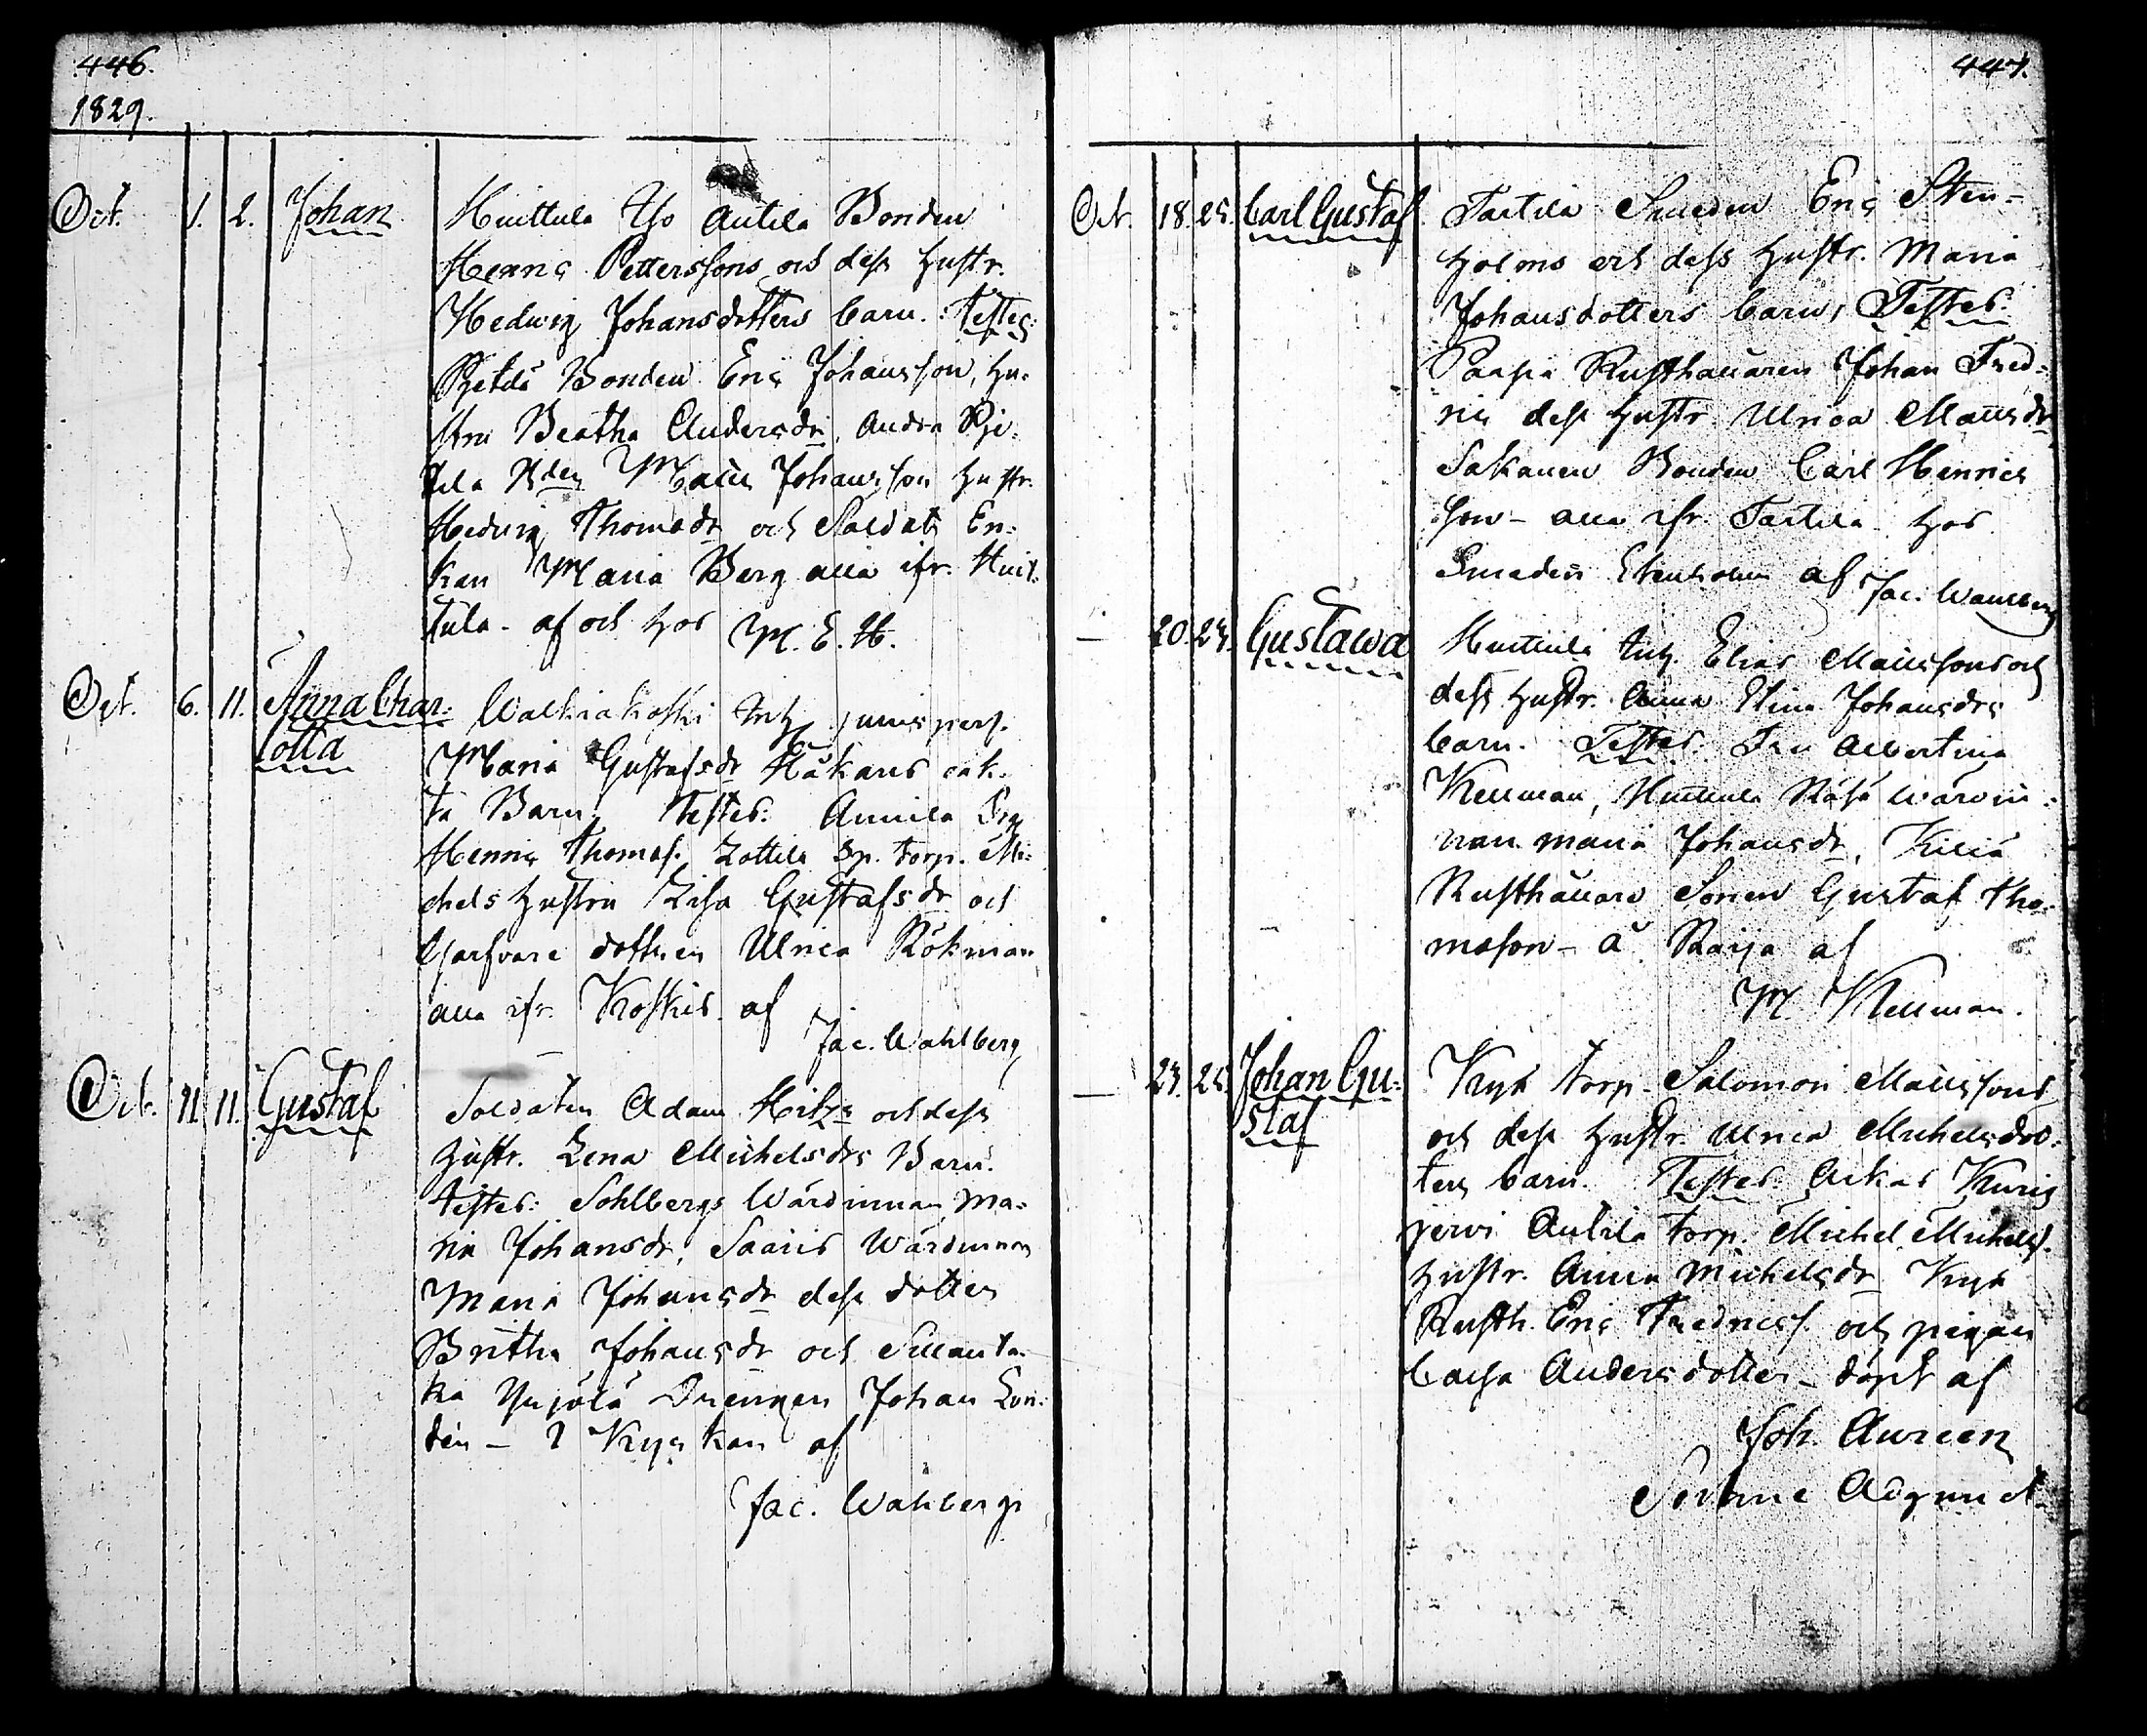 446.
1829.
Oct. 1. 2. Johan Huittula Yso Antila Bonden
Henric Petterssons och dess hustr.
Hedwig Johansdotters barn. Testes:
Bonden Eric Johansson, hu-
stru Beatha Andersdr, andra
Johansson hustr.
Hedwig Thomsdr och Soldats En-
kan Maria Berg alla ifr. Huit-
tula. af och hos M. E. H.
Oct. 6. 11. Anna Char-
lotta Walkiakoski
Maria Gustafsdr Håkans oäk-
ta Barn. Testes: Annila
Henric Thomas. Zottila Sp. torp. Mi-
chels hustru Lisa Gustafsdr och
Garfvare dottren Ulrica Rökman
alla ifr. Koskis af
Jac. Wahlberg
Oct. 11. 11. Gustaf Soldaten Adam och dess
hustr. Lena Michelsdrs Barn.
testes: Sohlbergs Wärdinnan Ma-
ria Johansdr, Saaris Wärdinnan
Maria Johansdr dess dotter
Britha Johansdr och
Drengen Johan Lon-
dén – i Kyrkan af
Jac. Wahlberg
447.
Oct. 18. 25. Carl Gustaf Tartila Smeden Eric Sten-
holms och dess hustr. Maria
Johansdotters barn, Testes:
Rusthållaren Johan Fred-
ric dess hustr. Ulrica Mattsdr
Sakanen Bonden Carl Henrics
son – alla ifr. Tartila hos
Smeden Stenholm af Jac. Wahlberg
— 20. 24. Gustawa Huittula Elias Mattssons och
dess hustr. Anna Stina Johansdrs
barn. Testes: Fru Albertina
Kellman, Huittula Wärdin-
nan Maria Johansdr,
Rusthållare Sonen Gustaf Tho-
masson – å af
M Kellman.
— 23. 25. Johan Gu-
staf torp. Salomon Mattssons
och dess hustr. Ulrica Michelsdot-
ters barn. Testes: Arkas Kuris
jerwi Antila torp. Michel Michelss.
hustr. Anna Michelsdr
Rusth. Eric Fredricss. och pigan
Caisa Andersdotter – döpt af
Joh. Aureen